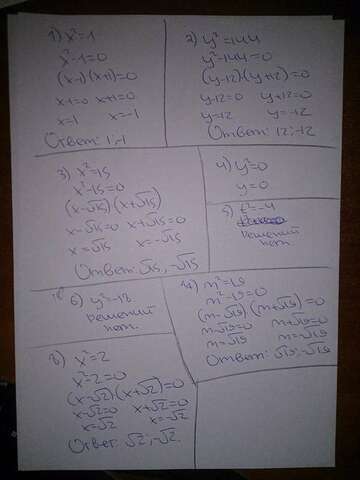 1) x²=1
x²-1=0
(x-1)(x+1)=0
x-1=0 x+1=0
x=1 x=-1
Ответ: 1;-1
2) y²=144
y²-144=0
(y-12)(y+12)=0
y-12=0 y+12=0
y=12 y=-12
Ответ: 12;-12
3) x²=15
x²-15=0
(x-√15)(x+√15)
x-√15=0 x+√15=0
x=√15 x=-√15
Ответ: √15,-√15
4) y²=0
y=0
5) t²=-4
решений
нет.
6) y²=-18
решений
нет.
m²=19
m²-19=0
(m-√19)(m+√19)=0
m-√19=0 m+√19=0
m=√19 m=-√19
Ответ: √19;-√19
8) x²=2
x²-2=0
(x-√2)(x+√2)=0
x-√2=0 x+√2=0
x=√2 x=-√2
Ответ: √2;-√2.